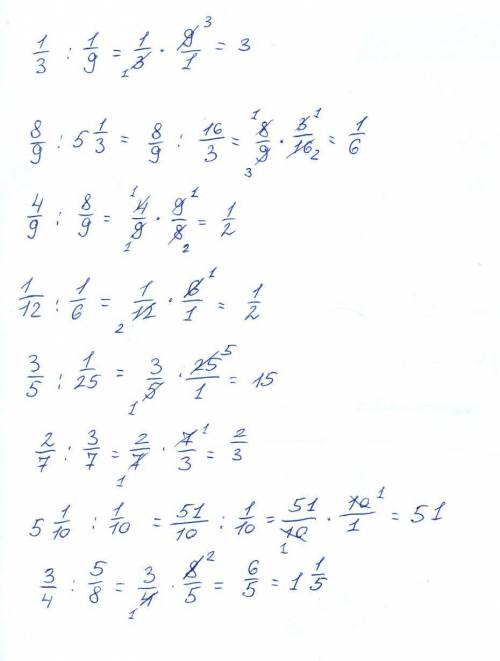 1/3 : 1/9 = 1/3 1 · 9/1 3 = 3
8/9 : 5 1/3 = 8/9 : 16/3 = 1 8/9 3 · 3/16 1 2 = 1/6
4/9 : 8/9 = 1 4/9 1 · 9/8 1 2 = 1/2
1/12 : 1/6 = 1/12 2 · 6/1 1 = 1/2
3/5 : 1/25 = 3/5 1 · 25/1 5 = 15
2/7 : 3/7 = 2/7 1 · 7/3 1 = 2/3
5 1/10 : 1/10 = 51/10 : 1/10 = 51/10 1 · 10/1 1 = 51
3/4 : 5/8 = 3/4 1 · 8/5 2 = 6/5 = 1 1/5